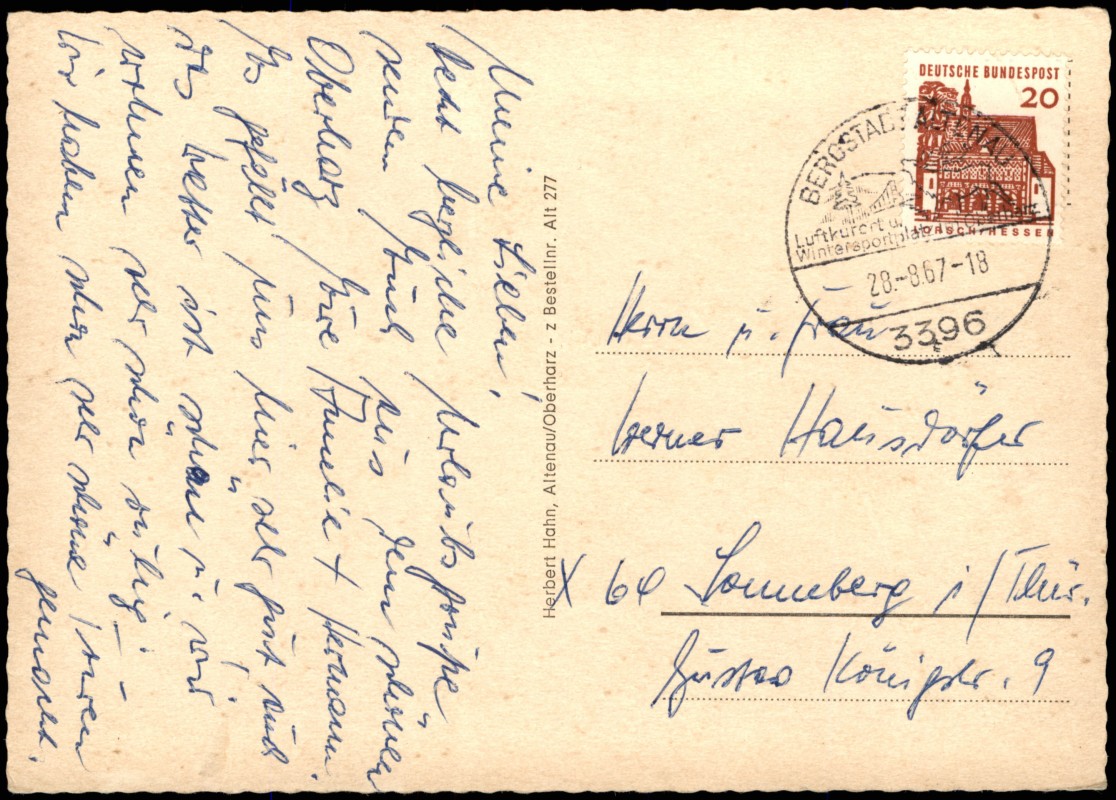 Meine Lieben,
Recht herzliche Urlaubsgrüße
senden Euch aus dem schönen
Oberharz Eure Amelie + Hermann.
Es gefällt uns hier sehr gut und
das Wetter ist schön u. wir
wohnen sehr schön ruhig.
Wir haben schon sehr schöne Turen
gemacht.
Herbert Hahn, Altenau/Oberharz - z Bestellnr. Alt 277
DEUTSCHE BUNDESPOST
20
LORSCH/HESSEN
BERGSTADT ALTENAU
Luftkurort u.
Wintersportplatz
28.-8.67-18
3396
Herrn u. Frau
Werner Hausdörfer
X 64 Sonneberg i/Thür.
Gustav Königstr. 9